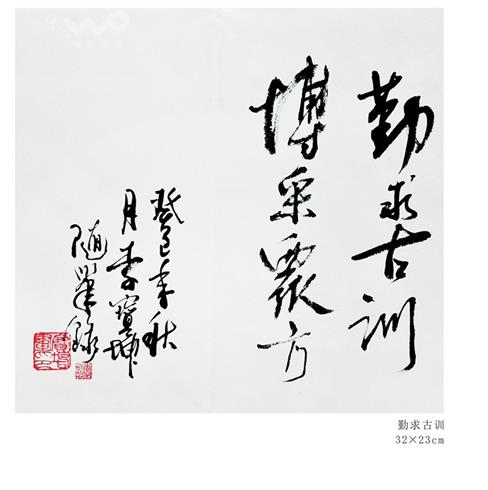 勤求古训
博采众方
癸巳年秋
月李宝坤
随笔录
勤求古训
32×23cm